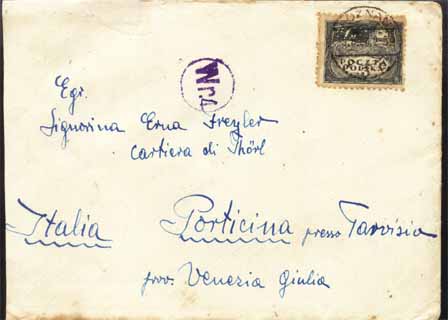 POZNAŃ
POCZTA
POLSKA
Wr.4
Egr.
Signorina Erna Freyler
Cartiera di Thörl
Italia Porticina presso Tarvisio
prov. Venezia Giulia